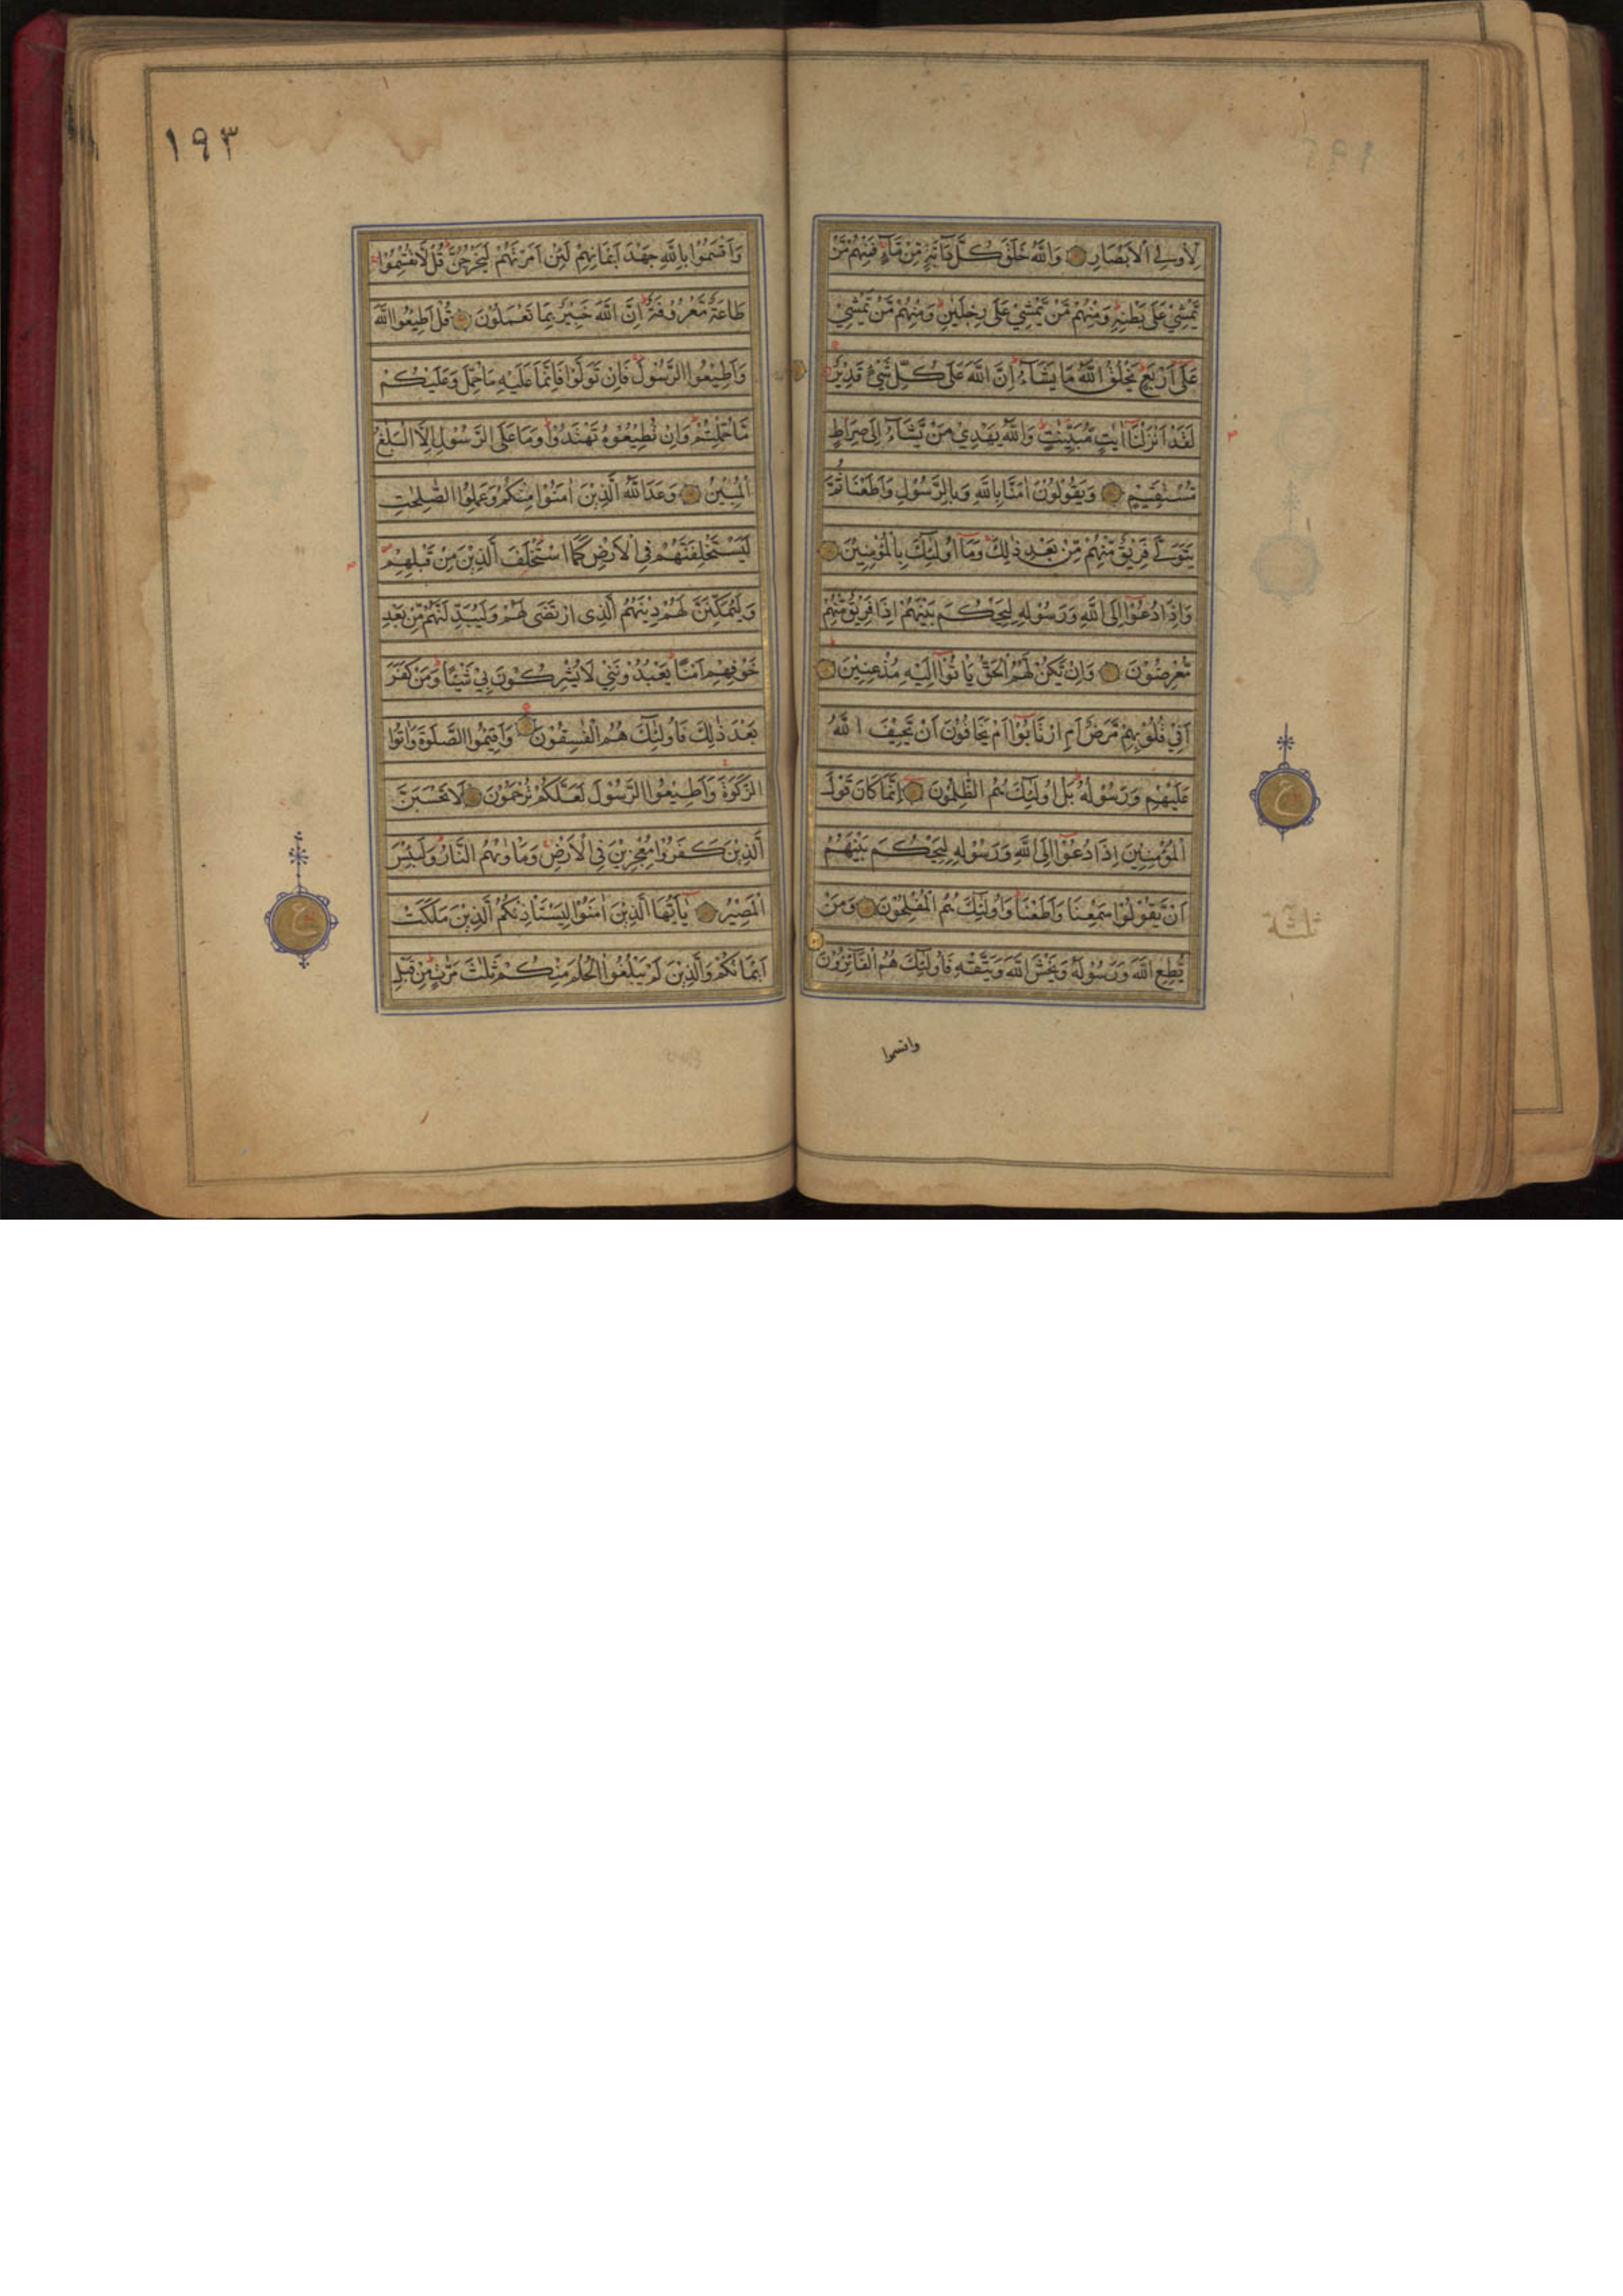 لِاُولِي الْاَبْصَارِ وَاللّٰهُ خَلَقَ كُلَّ دَآبَّةٍ مِّنْ مَّآءٍ فَمِنْهُمْ مَّنْ
يَّمْشِيْ عَلٰى بَطْنِهٖ وَمِنْهُمْ مَّنْ يَّمْشِيْ عَلٰى رِجْلَيْنِ وَمِنْهُمْ مَّنْ يَّمْشِيْ
عَلٰى اَرْبَعٍ يَخْلُقُ اللّٰهُ مَا يَشَآءُ اِنَّ اللّٰهَ عَلٰى كُلِّ شَيْءٍ قَدِيْرٌ
لَقَدْ اَنْزَلْنَآ اٰيٰتٍ مُّبَيِّنٰتٍ وَاللّٰهُ يَهْدِيْ مَنْ يَّشَآءُ اِلٰى صِرَاطٍ
مُّسْتَقِيْمٍ وَيَقُوْلُوْنَ اٰمَنَّا بِاللّٰهِ وَبِالرَّسُوْلِ وَاَطَعْنَا ثُمَّ
يَتَوَلّٰى فَرِيْقٌ مِّنْهُمْ مِّنْ بَعْدِ ذٰلِكَ وَمَآ اُولٰٓئِكَ بِالْمُؤْمِنِيْنَ
وَاِذَا دُعُوْٓا اِلَى اللّٰهِ وَرَسُوْلِهٖ لِيَحْكُمَ بَيْنَهُمْ اِذَا فَرِيْقٌ مِّنْهُمْ
مُّعْرِضُوْنَ وَاِنْ يَّكُنْ لَّهُمُ الْحَقُّ يَاْتُوْٓا اِلَيْهِ مُذْعِنِيْنَ
اَفِيْ قُلُوْبِهِمْ مَّرَضٌ اَمِ ارْتَابُوْٓا اَمْ يَخَافُوْنَ اَنْ يَّحِيْفَ اللّٰهُ
عَلَيْهِمْ وَرَسُوْلُهٗ بَلْ اُولٰٓئِكَ هُمُ الظّٰلِمُوْنَ اِنَّمَا كَانَ قَوْلَ
الْمُؤْمِنِيْنَ اِذَا دُعُوْٓا اِلَى اللّٰهِ وَرَسُوْلِهٖ لِيَحْكُمَ بَيْنَهُمْ
اَنْ يَّقُوْلُوْا سَمِعْنَا وَاَطَعْنَا وَاُولٰٓئِكَ هُمُ الْمُفْلِحُوْنَ وَمَنْ
يُّطِعِ اللّٰهَ وَرَسُوْلَهٗ وَيَخْشَ اللّٰهَ وَيَتَّقْهِ فَاُولٰٓئِكَ هُمُ الْفَآئِزُوْنَ
واقسموا
ع
١٩٣
وَاَقْسَمُوْا بِاللّٰهِ جَهْدَ اَيْمَانِهِمْ لَئِنْ اَمَرْتَهُمْ لَيَخْرُجُنَّ قُلْ لَّا تُقْسِمُوْا
طَاعَةٌ مَّعْرُوْفَةٌ اِنَّ اللّٰهَ خَبِيْرٌ بِمَا تَعْمَلُوْنَ قُلْ اَطِيْعُوا اللّٰهَ
وَاَطِيْعُوا الرَّسُوْلَ فَاِنْ تَوَلَّوْا فَاِنَّمَا عَلَيْهِ مَا حُمِّلَ وَعَلَيْكُمْ
مَّا حُمِّلْتُمْ وَاِنْ تُطِيْعُوْهُ تَهْتَدُوْا وَمَا عَلَى الرَّسُوْلِ اِلَّا الْبَلٰغُ
الْمُبِيْنُ وَعَدَ اللّٰهُ الَّذِيْنَ اٰمَنُوْا مِنْكُمْ وَعَمِلُوا الصّٰلِحٰتِ
لَيَسْتَخْلِفَنَّهُمْ فِي الْاَرْضِ كَمَا اسْتَخْلَفَ الَّذِيْنَ مِنْ قَبْلِهِمْ
وَلَيُمَكِّنَنَّ لَهُمْ دِيْنَهُمُ الَّذِي ارْتَضٰى لَهُمْ وَلَيُبَدِّلَنَّهُمْ مِّنْ بَعْدِ
خَوْفِهِمْ اَمْنًا يَعْبُدُوْنَنِيْ لَا يُشْرِكُوْنَ بِيْ شَيْئًا وَمَنْ كَفَرَ
بَعْدَ ذٰلِكَ فَاُولٰٓئِكَ هُمُ الْفٰسِقُوْنَ وَاَقِيْمُوا الصَّلٰوةَ وَاٰتُوا
الزَّكٰوةَ وَاَطِيْعُوا الرَّسُوْلَ لَعَلَّكُمْ تُرْحَمُوْنَ لَا تَحْسَبَنَّ
الَّذِيْنَ كَفَرُوْا مُعْجِزِيْنَ فِي الْاَرْضِ وَمَاْوٰىهُمُ النَّارُ وَلَبِئْسَ
الْمَصِيْرُ يٰٓاَيُّهَا الَّذِيْنَ اٰمَنُوْا لِيَسْتَاْذِنْكُمُ الَّذِيْنَ مَلَكَتْ
اَيْمَانُكُمْ وَالَّذِيْنَ لَمْ يَبْلُغُوا الْحُلُمَ مِنْكُمْ ثَلٰثَ مَرّٰتٍ مِنْ قَبْلِ
ع